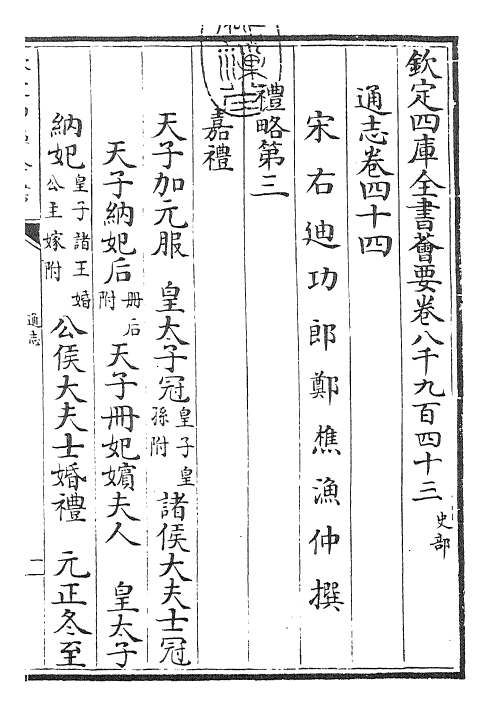 欽定四庫全書薈要卷八千九百四十三 史部
通志卷四十四
宋右迪功郎鄭樵漁仲撰
禮略第三
嘉禮
天子加元服 皇太子冠 皇子皇孫附 諸侯大夫士冠
天子納妃后 冊后附 天子冊妃嬪夫人 皇太子
納妃 皇子諸王婚公主嫁附 公侯大夫士婚禮 元正冬至
通志